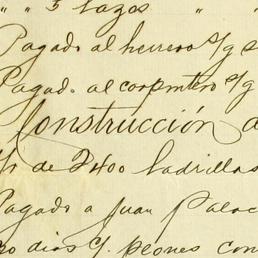 " " 5 lazos "
Pagado al herrero s/g s
Pagado al carpintero s/g
Construcción d
de 2400 ladrillas
Pagado a Juan Palac
dias y peones con